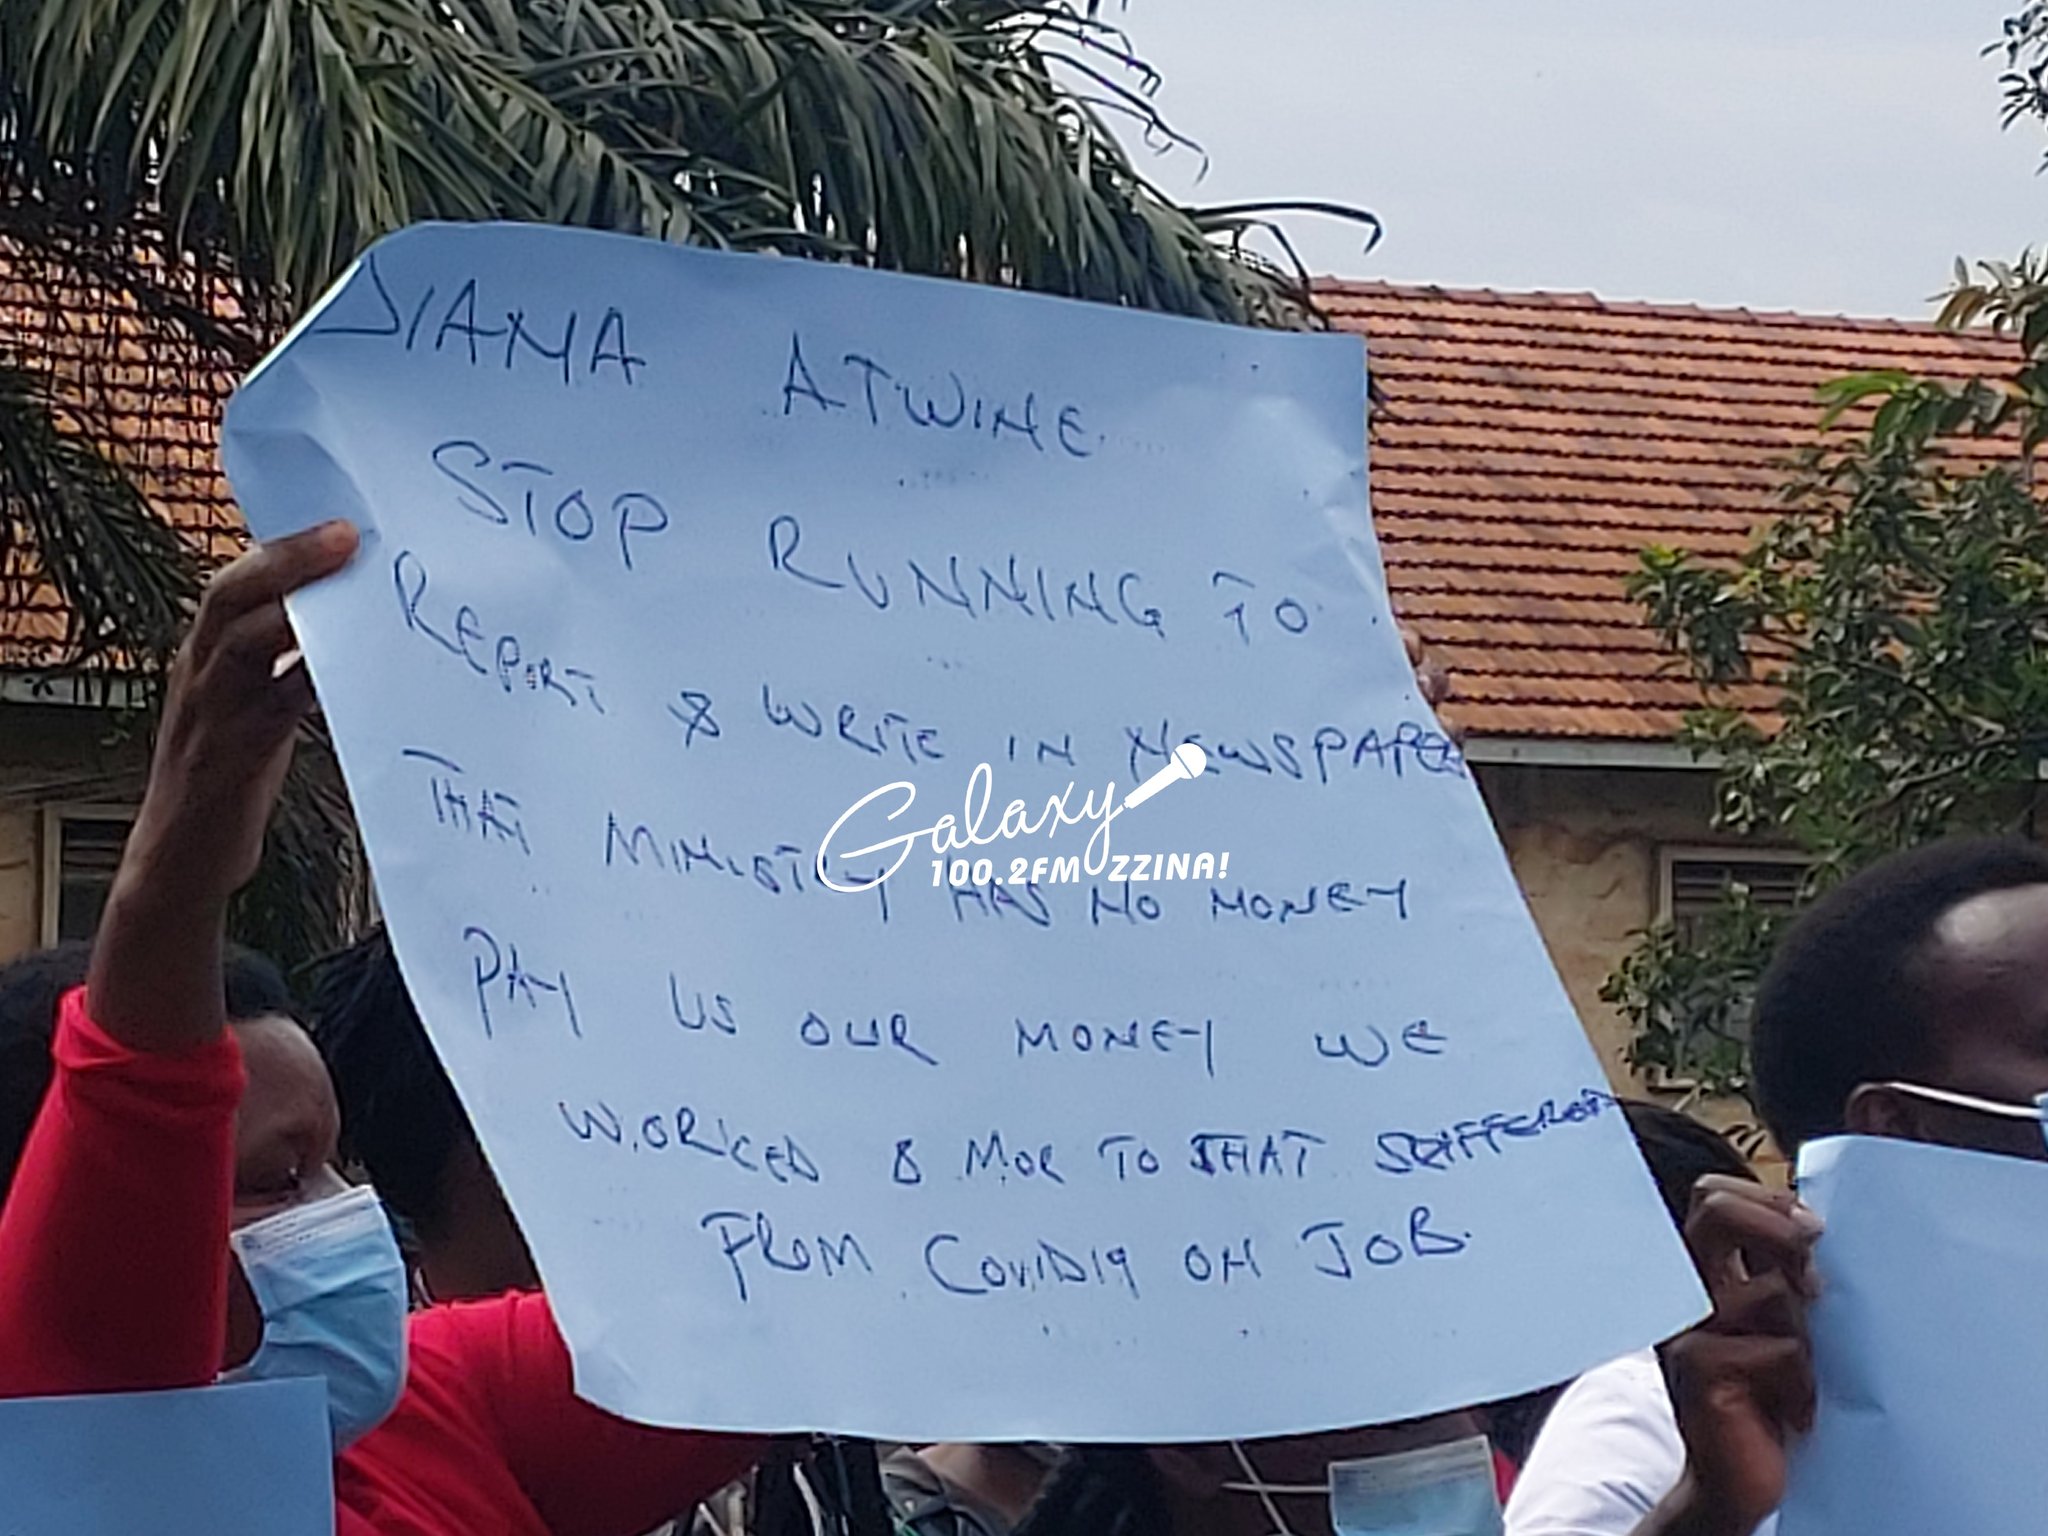 DIANA ATWINE
STOP RUNNING TO
REPORT & WRITE IN NEWSPAPER
THAT MINISTRY HAS NO MONEY
PAY US OUR MONEY WE
WORKED & MOR TO THAT SUFFERED
FROM COVID19 ON JOB.
Galaxy
100.2FM ZZINA!